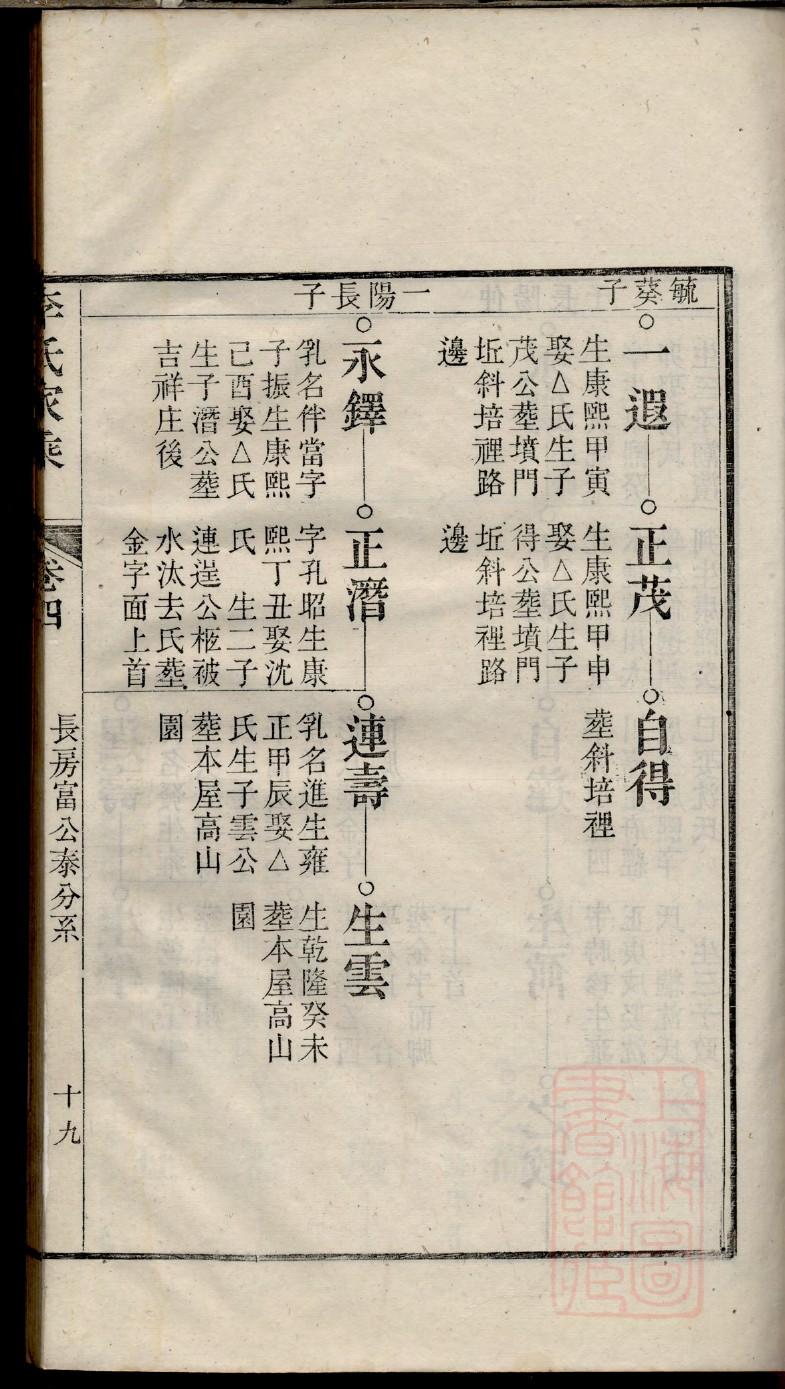 毓葵子
一遐
生康熙甲寅
娶△氏生子
茂公塟墳門
坵斜培裡路
邊
正茂
生康熙甲申
娶△氏生子
得公塟墳門
坵斜培裡路
邊
自得
塟斜培裡
一陽長子
永鐸
乳名伴當字
子振生康熙
己酉娶△氏
生子潛公塟
吉祥庄後
正潛
字孔昭生康
熙丁丑娶沈
氏 生二子
連逞公柩被
水汰去氏塟
金字面上首
連壽
乳名進生雍
正甲辰娶△
氏生子雲公
塟本屋高山
園
生雲
生乾隆癸未
塟本屋高山
園
李氏家乘
卷四
長房富公泰分系
十九
上海圖書館藏